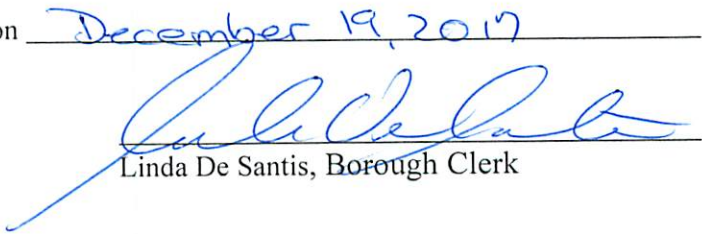 on December 19, 2017
Linda De Santis, Borough Clerk